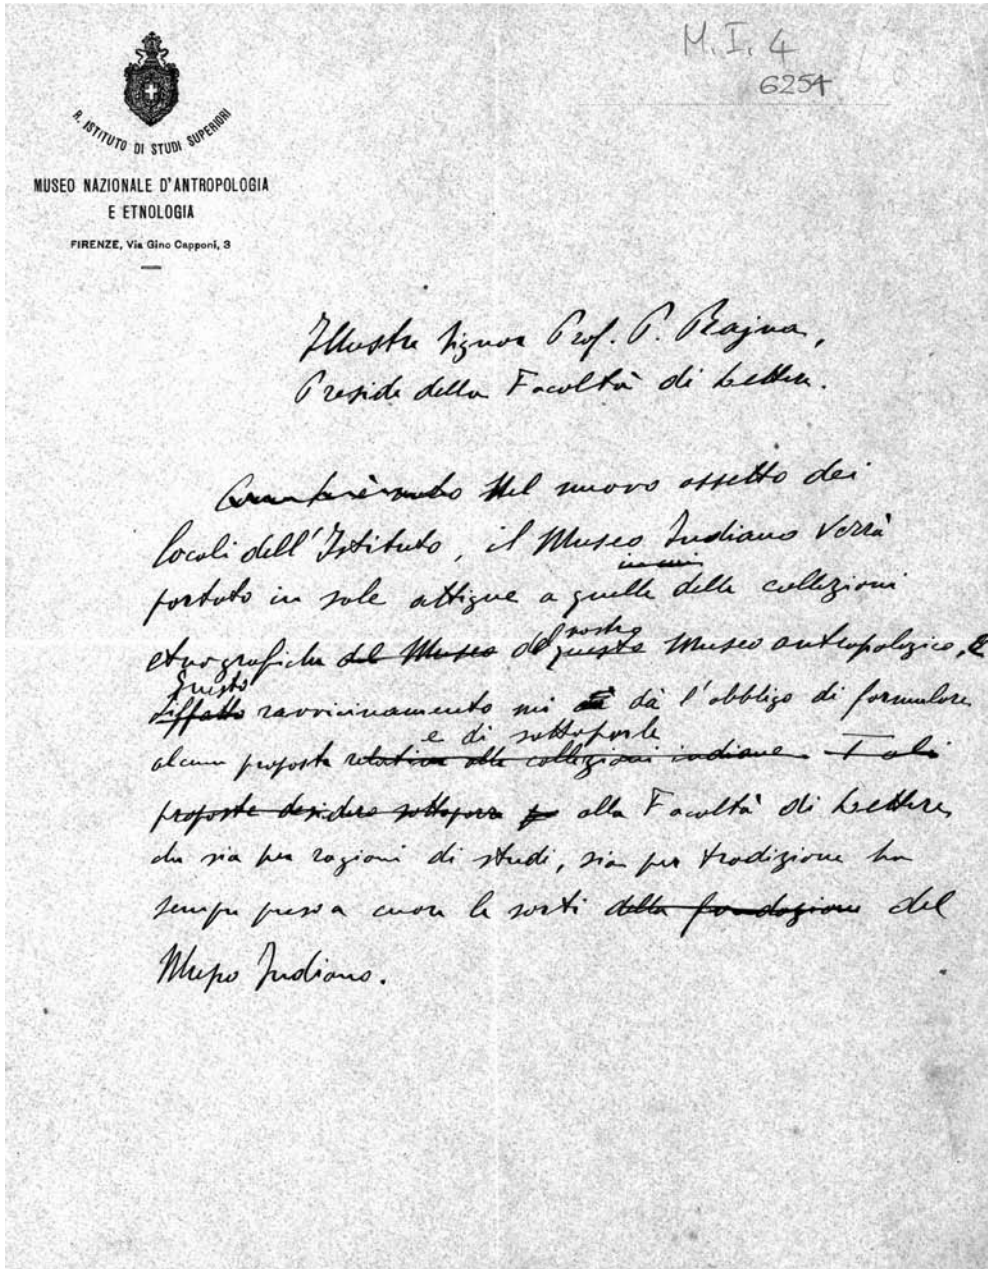 M. I. 4
6254
R. ISTITUTO DI STUDI SUPERIORI
MUSEO NAZIONALE D'ANTROPOLOGIA
E ETNOLOGIA
FIRENZE, Via Gino Capponi, 3
Illustre Signor Prof. P. Rajna,
Preside della Facoltà di Lettere.
Nel nuovo assetto dei
locali dell'Istituto, il Museo Indiano verrà
portato in sale attigue a quelle delle collezioni
nostro
etnografiche del Museo del questo Museo antropologico, E
Questo
siffatto ravvicinamento mi dà l'obbligo di formulare
e di sottoporle
alcune proposte relative alle collezioni indiane. Tali
proposte desidero sottoporre alla Facoltà di Lettere,
che sia per ragioni di studi, sia per tradizione ha
sempre preso a cuore le sorti della fondazione del
Museo Indiano.